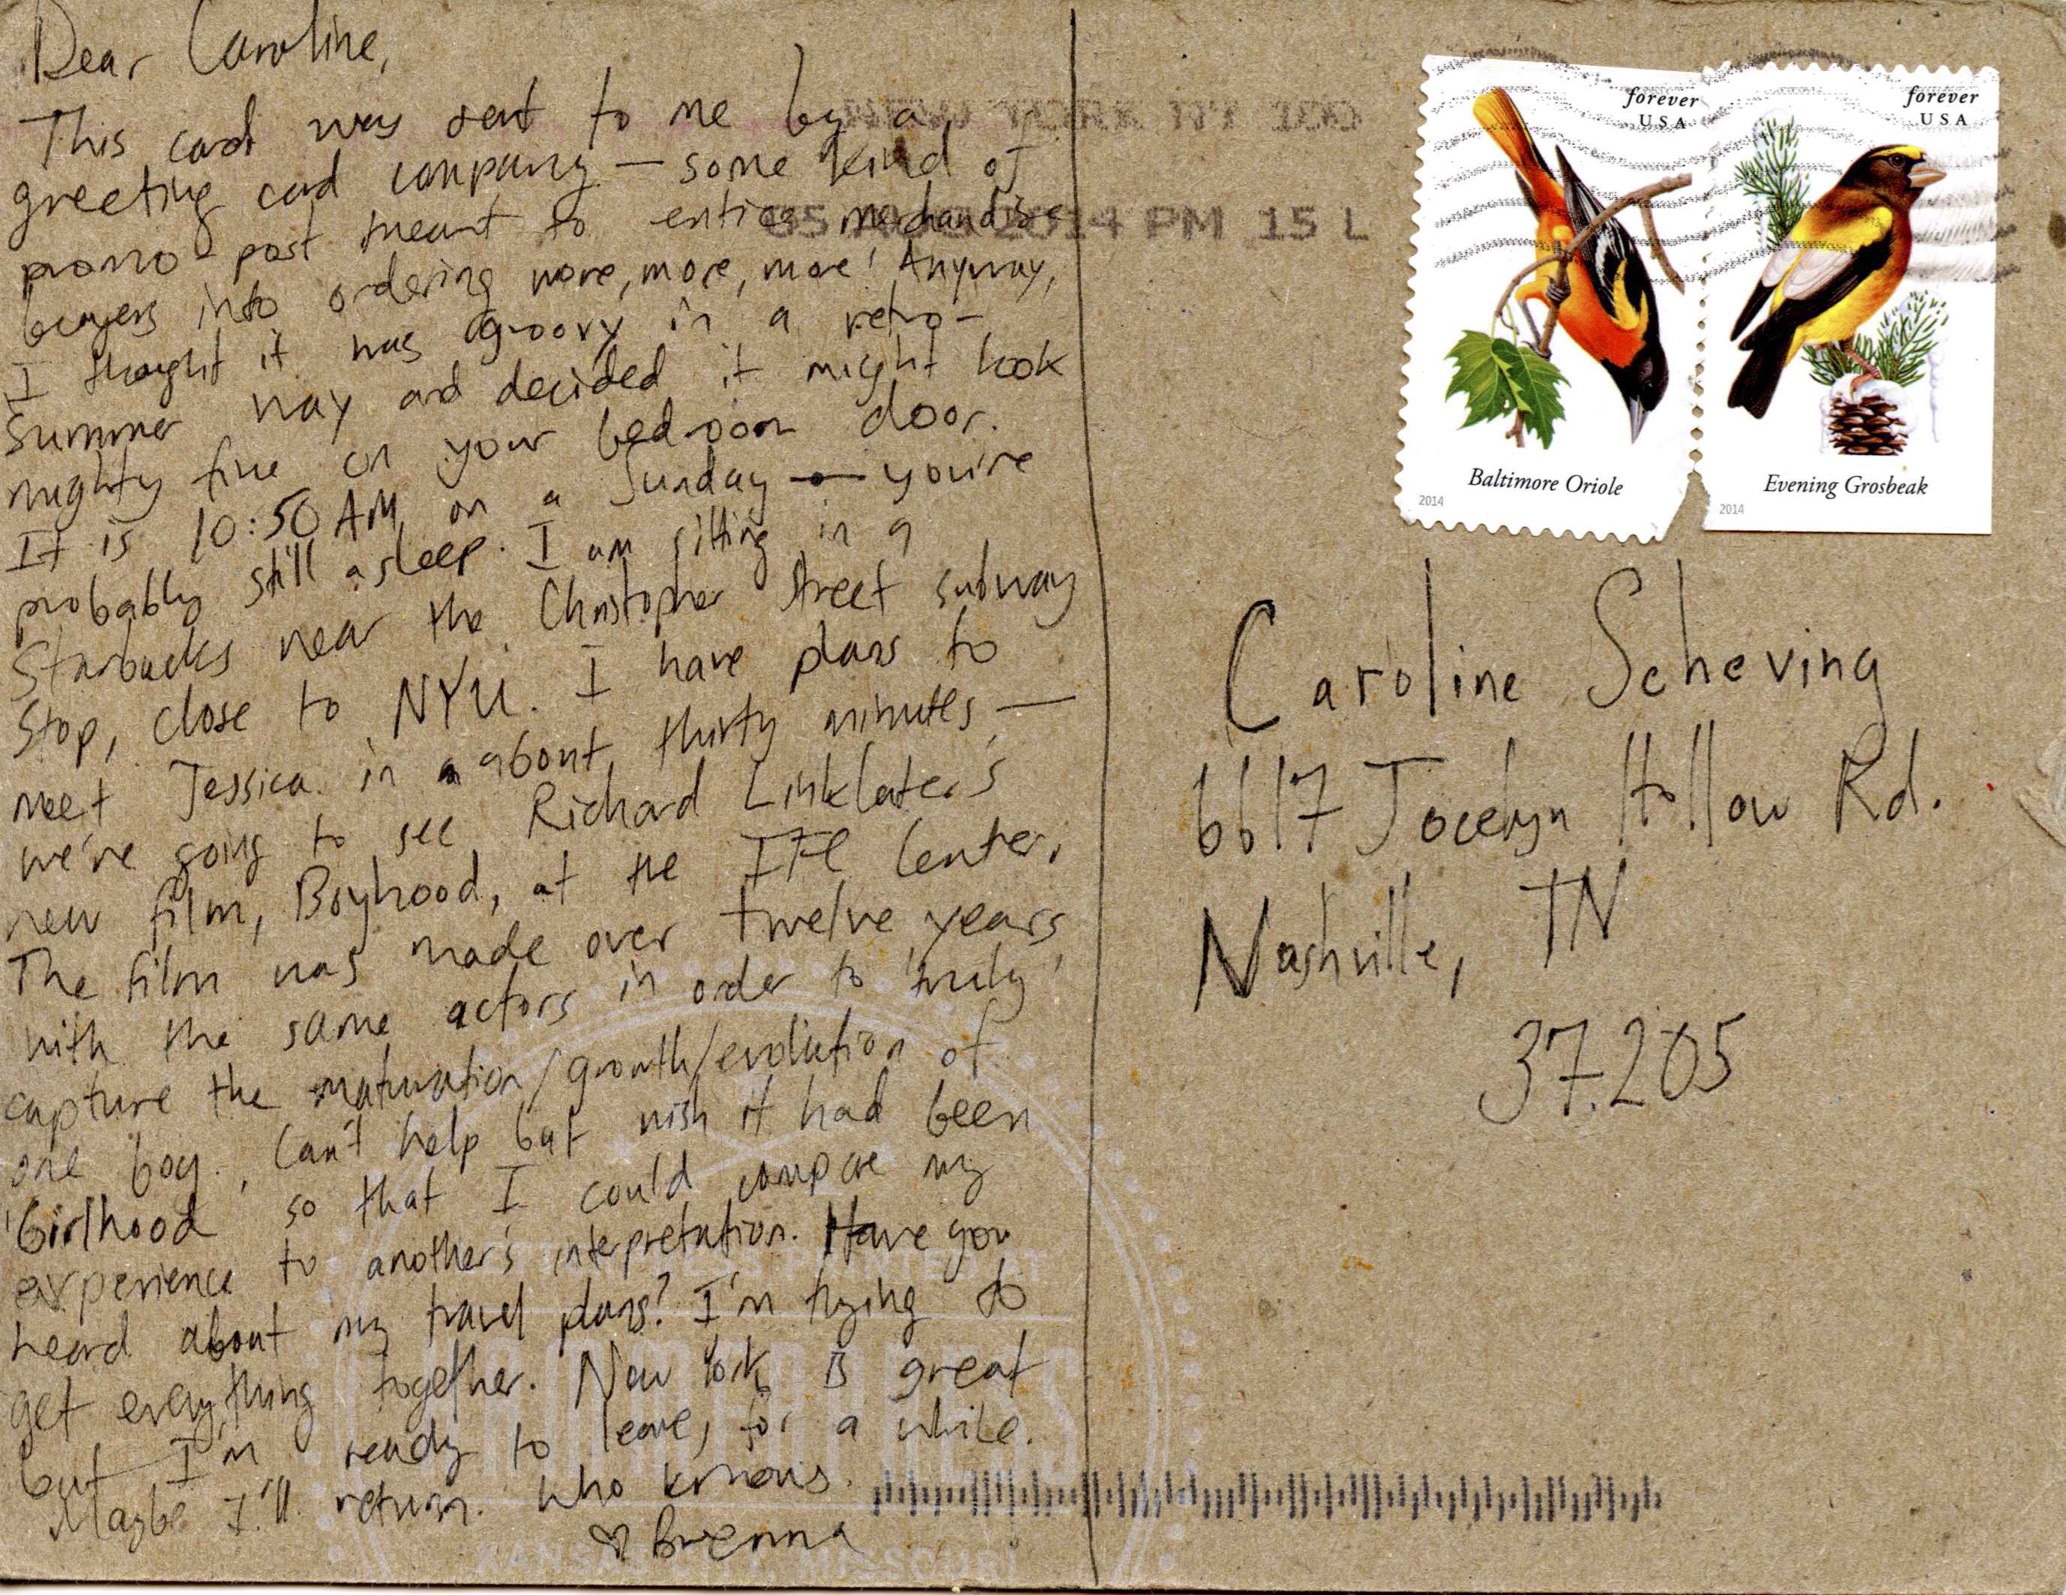 Dear Caroline,
This card was sent to me by a
greeting card company — some kind of
promo post meant to entice merchandise
buyers into ordering more, more, more! Anyway,
I thought it was groovy in a retro-
summer way and decided it might look
mighty fine on your bedroom door.
It is 10:50 AM on a Sunday — you're
probably still asleep. I am sitting in a
Starbucks near the Christopher Street subway
stop, close to NYU. I have plans to
meet Jessica in about thirty minutes —
we're going to see Richard Linklater's
new film, Boyhood, at the IFC Center.
The film was made over twelve years
with the same actors in order to 'truly'
capture the maturation/growth/evolution of
one boy. Can't help but wish it had been
'Girlhood so that I could compare my
experience to another's interpretation. Have you
heard about my travel plans? I'm trying to
get everything together. New York is great
but I'm ready to leave, for a while.
Maybe I'll return. Who knows.
♡ Brenna
NEW YORK NY 100
05 AUG 2014 PM 15 L
forever
USA
Baltimore Oriole
2014
forever
USA
Evening Grosbeak
2014
Caroline Scheving
6617 Jocelyn Hollow Rd.
Nashville, TN
37205
KANSAS CITY, MISSOURI